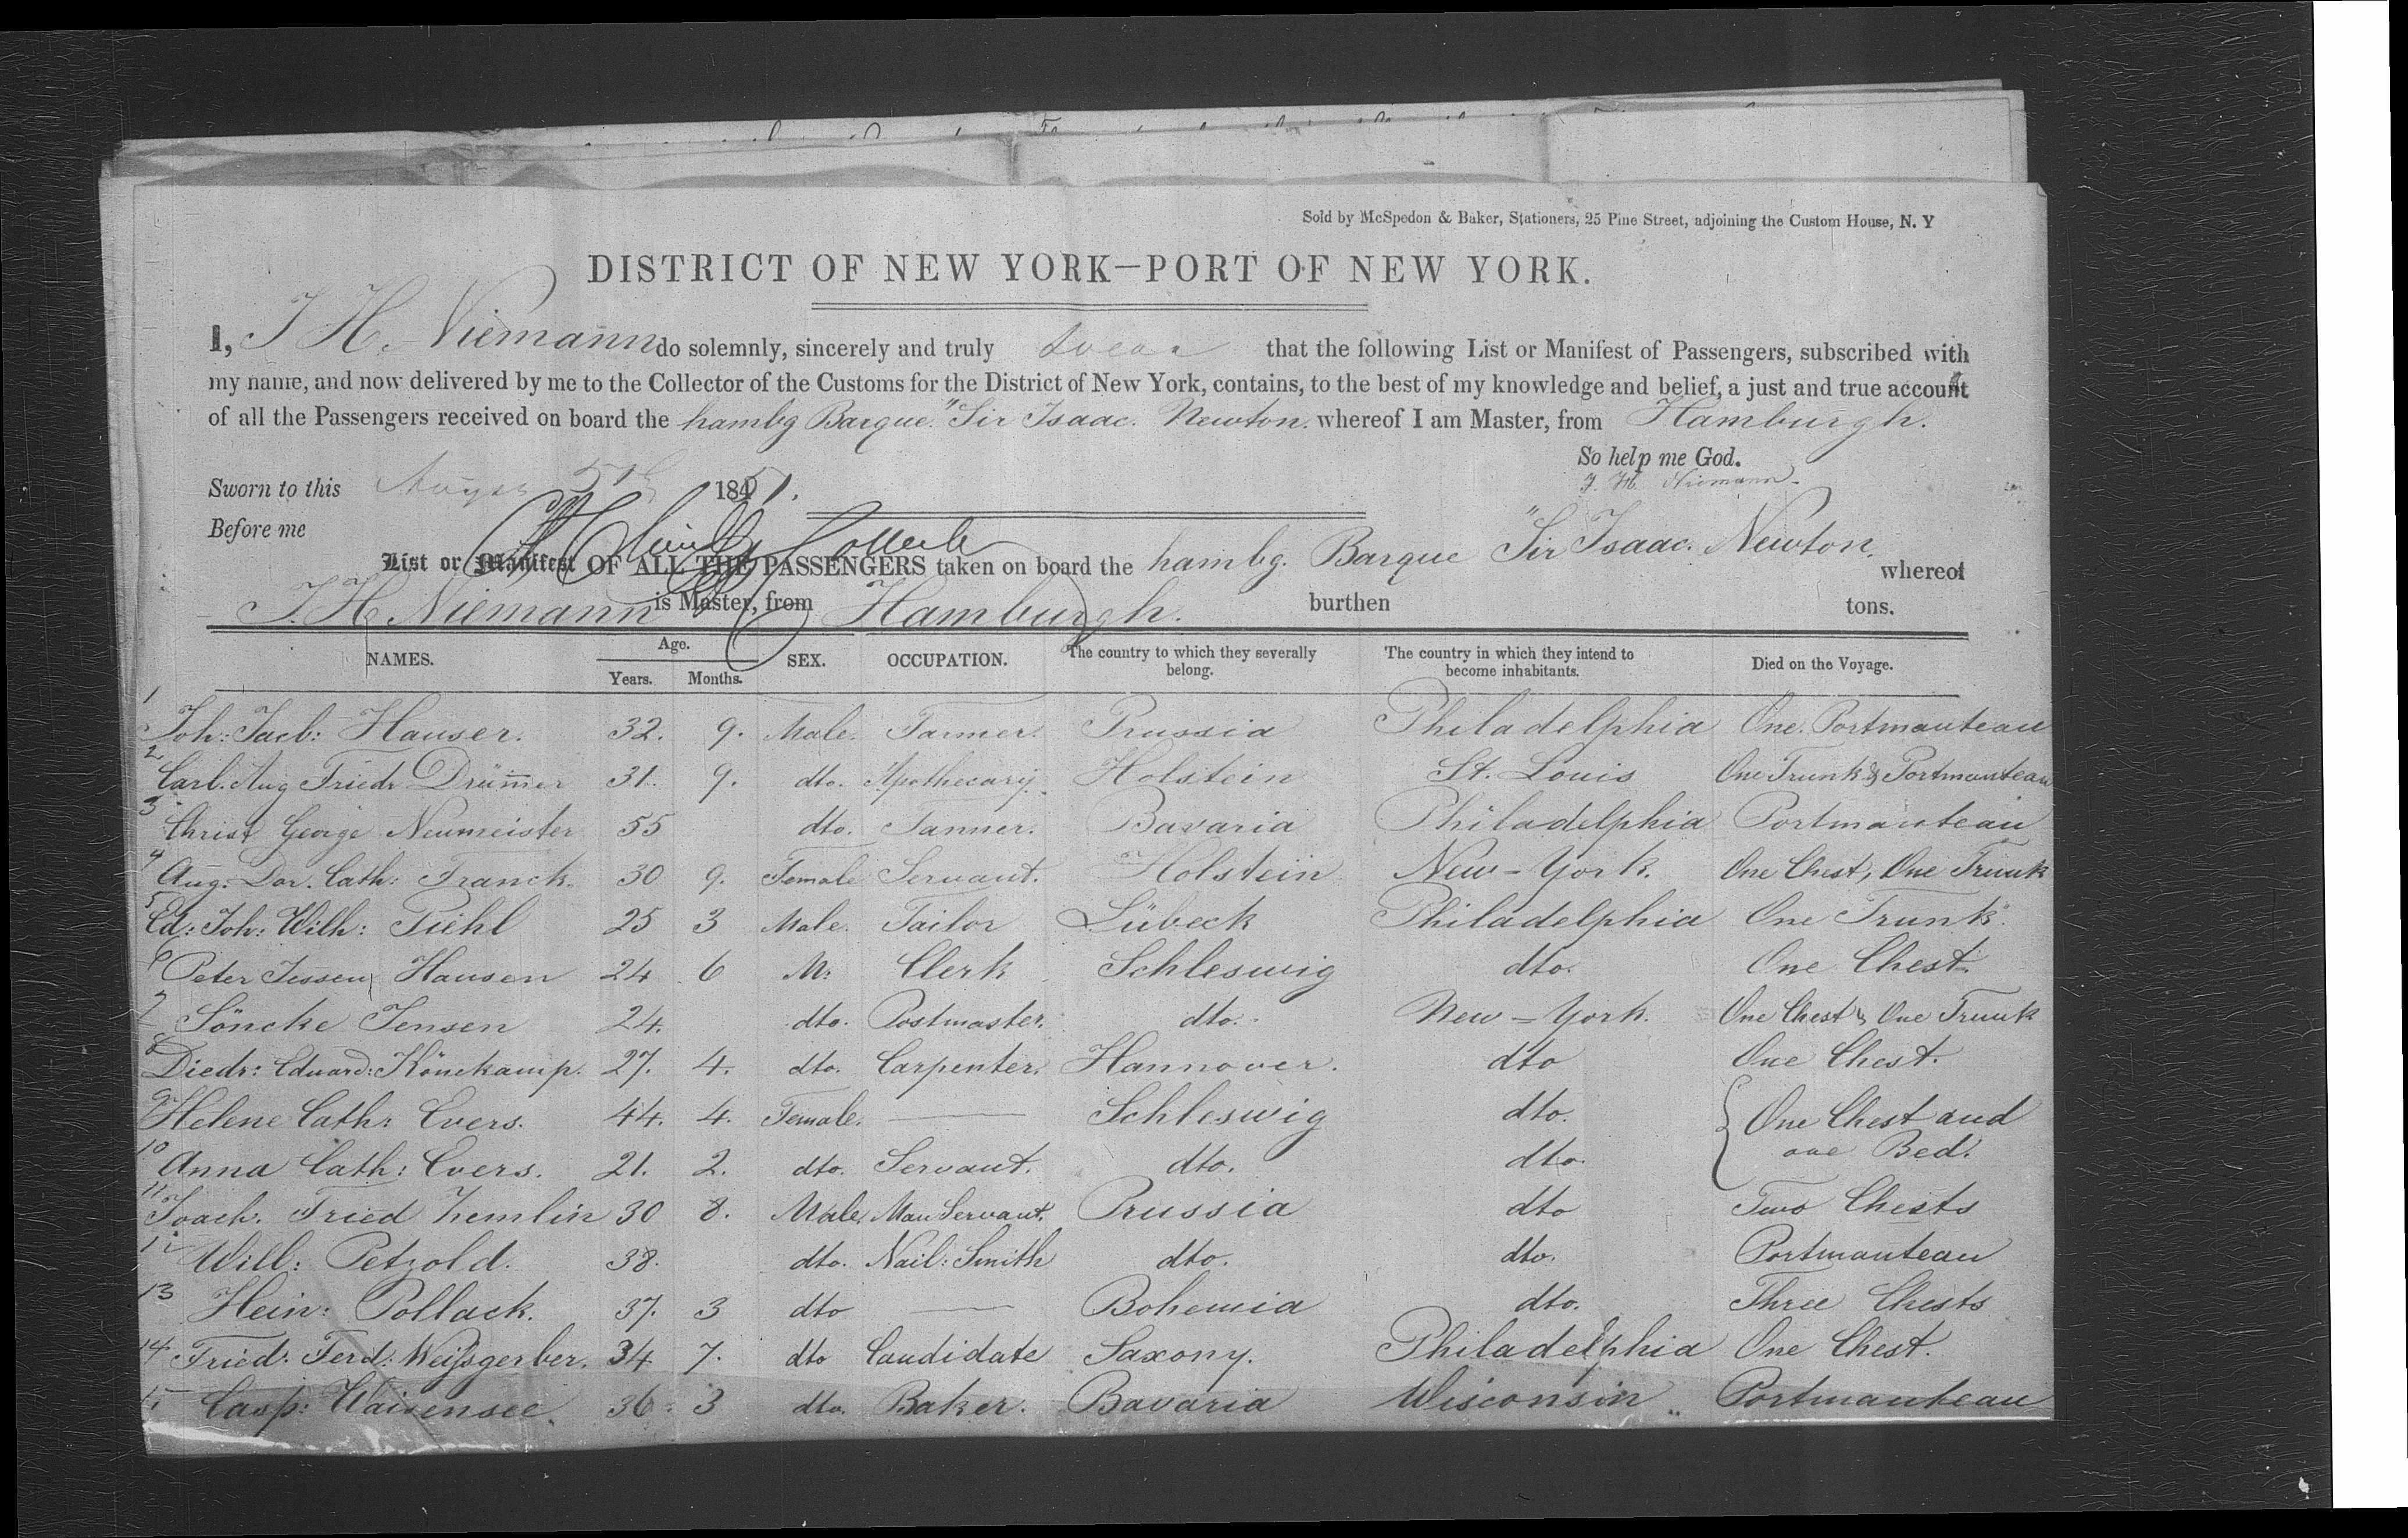 Sold by McSpedon & Baker, Stationers, 25 Pine Street, adjoining the Custom House, N. Y
DISTRICT OF NEW YORK—PORT OF NEW YORK.
I, J H. Niemann do solemnly, sincerely and truly swear that the following List or Manifest of Passengers, subscribed with
my name, and now delivered by me to the Collector of the Customs for the District of New York, contains, to the best of my knowledge and belief, a just and true account
of all the Passengers received on board the hambg Barque "Sir Isaac. Newton. whereof I am Master, from Hamburgh.
So help me God.
J. H. Niemann.
Sworn to this August 5th 1851.
Before me
List or Manifest OF ALL THE PASSENGERS taken on board the hambg. Barque "Sir Isaac. Newton. whereof
J. H. Niemann is Master, from Hamburgh. burthen tons.
NAMES. Age. Years. Months. SEX. OCCUPATION. The country to which they severally belong. The country in which they intend to become inhabitants. Died on the Voyage.
1 Joh: Jacb: Hauser. 32. 9. Male. Farmer. Prussia Philadelphia One Portmanteau
2 Carl. Aug Friedr Drüm̄er 31. 9. dto. Apothecary. Holstein St. Louis One Trunk & Portmanteau
3 Christ George Neumeister 55 dto. Tanner. Bavaria Philadelphia Portmanteau
4 Aug: Dor. Cath: Franck. 30 9. Female Servant. Holstein New-York. One Chest, One Trunk
5 Ed: Joh: Wilh: Piehl 25 3 Male. Tailor Lübeck Philadelphia One Trunk.
6 Peter Jessen Hansen 24 6 M: Clerk Schleswig dto. One Chest.
7 Söncke Jensen 24. dto. Postmaster. dto. New-York. One Chest & One Trunk
8 Diedr: Eduard: Könekamp. 27. 4. dto. Carpenter. Hannover. dto One Chest.
9 Helene Cath: Evers. 44. 4. Female. — Schleswig dto. One Chest and
10 Anna Cath: Evers. 21. 2. dto. Servant. dto. dto. one Bed.
11 Joach. Fried Zemlin 30 8. Male. Man Servant. Prussia dto Two Chests
12 Will: Petzold. 38. dto. Nail: Smith dto. dto. Portmanteau
13 Hein: Pollack. 37. 3 dto — Bohemia dto. Three Chests
14 Fried: Ferd: Weißgerber. 34 7. dto Candidate Saxony. Philadelphia One Chest.
15 Casp: Waisensee. 36. 3 dto. Baker. Bavaria Wisconsin Portmanteau